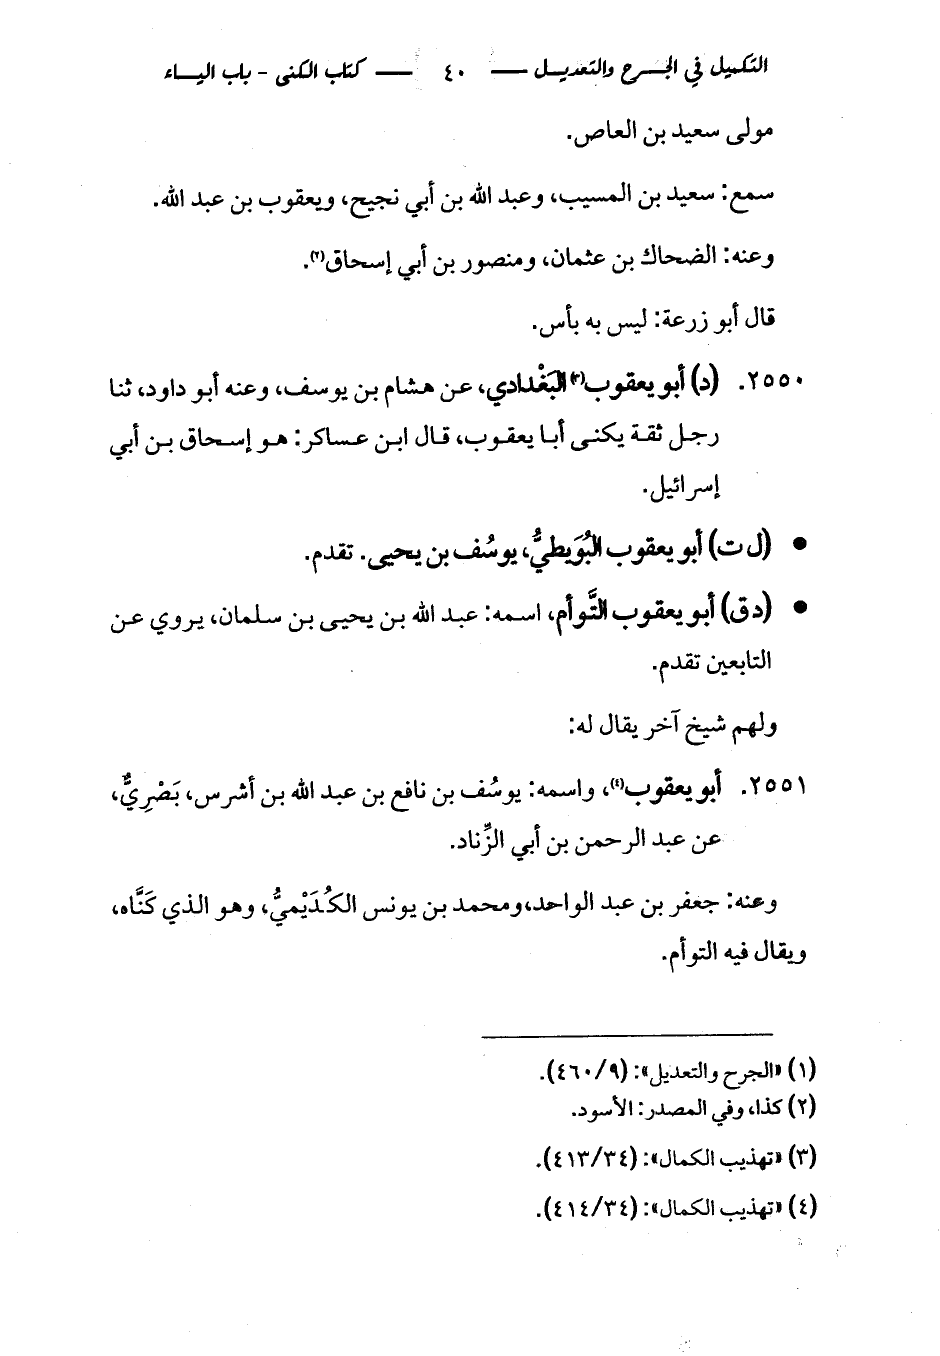 التكميل في الجرح والتعديل — ٤٠ — كتاب الكنى - باب الياء
مولى سعيد بن العاص.
سمع: سعيد بن المسيب، وعبد الله بن أبي نجيح، ويعقوب بن عبد الله.
وعنه: الضحاك بن عثمان، ومنصور بن أبي إسحاق(٢).
قال أبو زرعة: ليس به بأس.
٢٥٥٠. (د) أبو يعقوب(٣) البَغْدادي، عن هشام بن يوسف، وعنه أبو داود، ثنا
رجل ثقة يكنى أبا يعقوب، قال ابن عساكر: هو إسحاق بن أبي
إسرائيل.
● (ل ت) أبو يعقوب البُوَيطيُّ، يوسُف بن يحيى. تقدم.
● (دق) أبو يعقوب التَّوأم، اسمه: عبد الله بن يحيى بن سلمان، يروي عن
التابعين تقدم.
ولهم شيخ آخر يقال له:
٢٥٥١. أبو يعقوب(٤)، واسمه: يوسُف بن نافع بن عبد الله بن أشرس، بَصْرِيٌّ،
عن عبد الرحمن بن أبي الزِّناد.
وعنه: جعفر بن عبد الواحد،ومحمد بن يونس الكُدَيْميُّ، وهو الذي كَنَّاه،
ويقال فيه التوأم.
(١) «الجرح والتعديل»: (٤٦٠/٩).
(٢) كذا، وفي المصدر: الأسود.
(٣) «تهذيب الكمال»: (٤١٣/٣٤).
(٤) «تهذيب الكمال»: (٤١٤/٣٤).